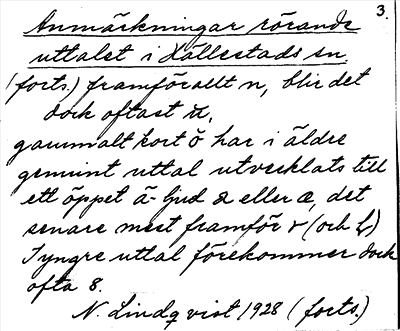 3.
Anmärkningar rörande
uttalet i Hällestads sn.
(forts.) framförallt n, blir det
dock oftast
gammalt kort ŏ har i äldre
genuint uttal utvecklats till
ett öppet ä-ljud eller æ, det
senare mest framför r (och
I yngre uttal förekommer dock
ofta
N. Lindqvist 1928 (forts.)